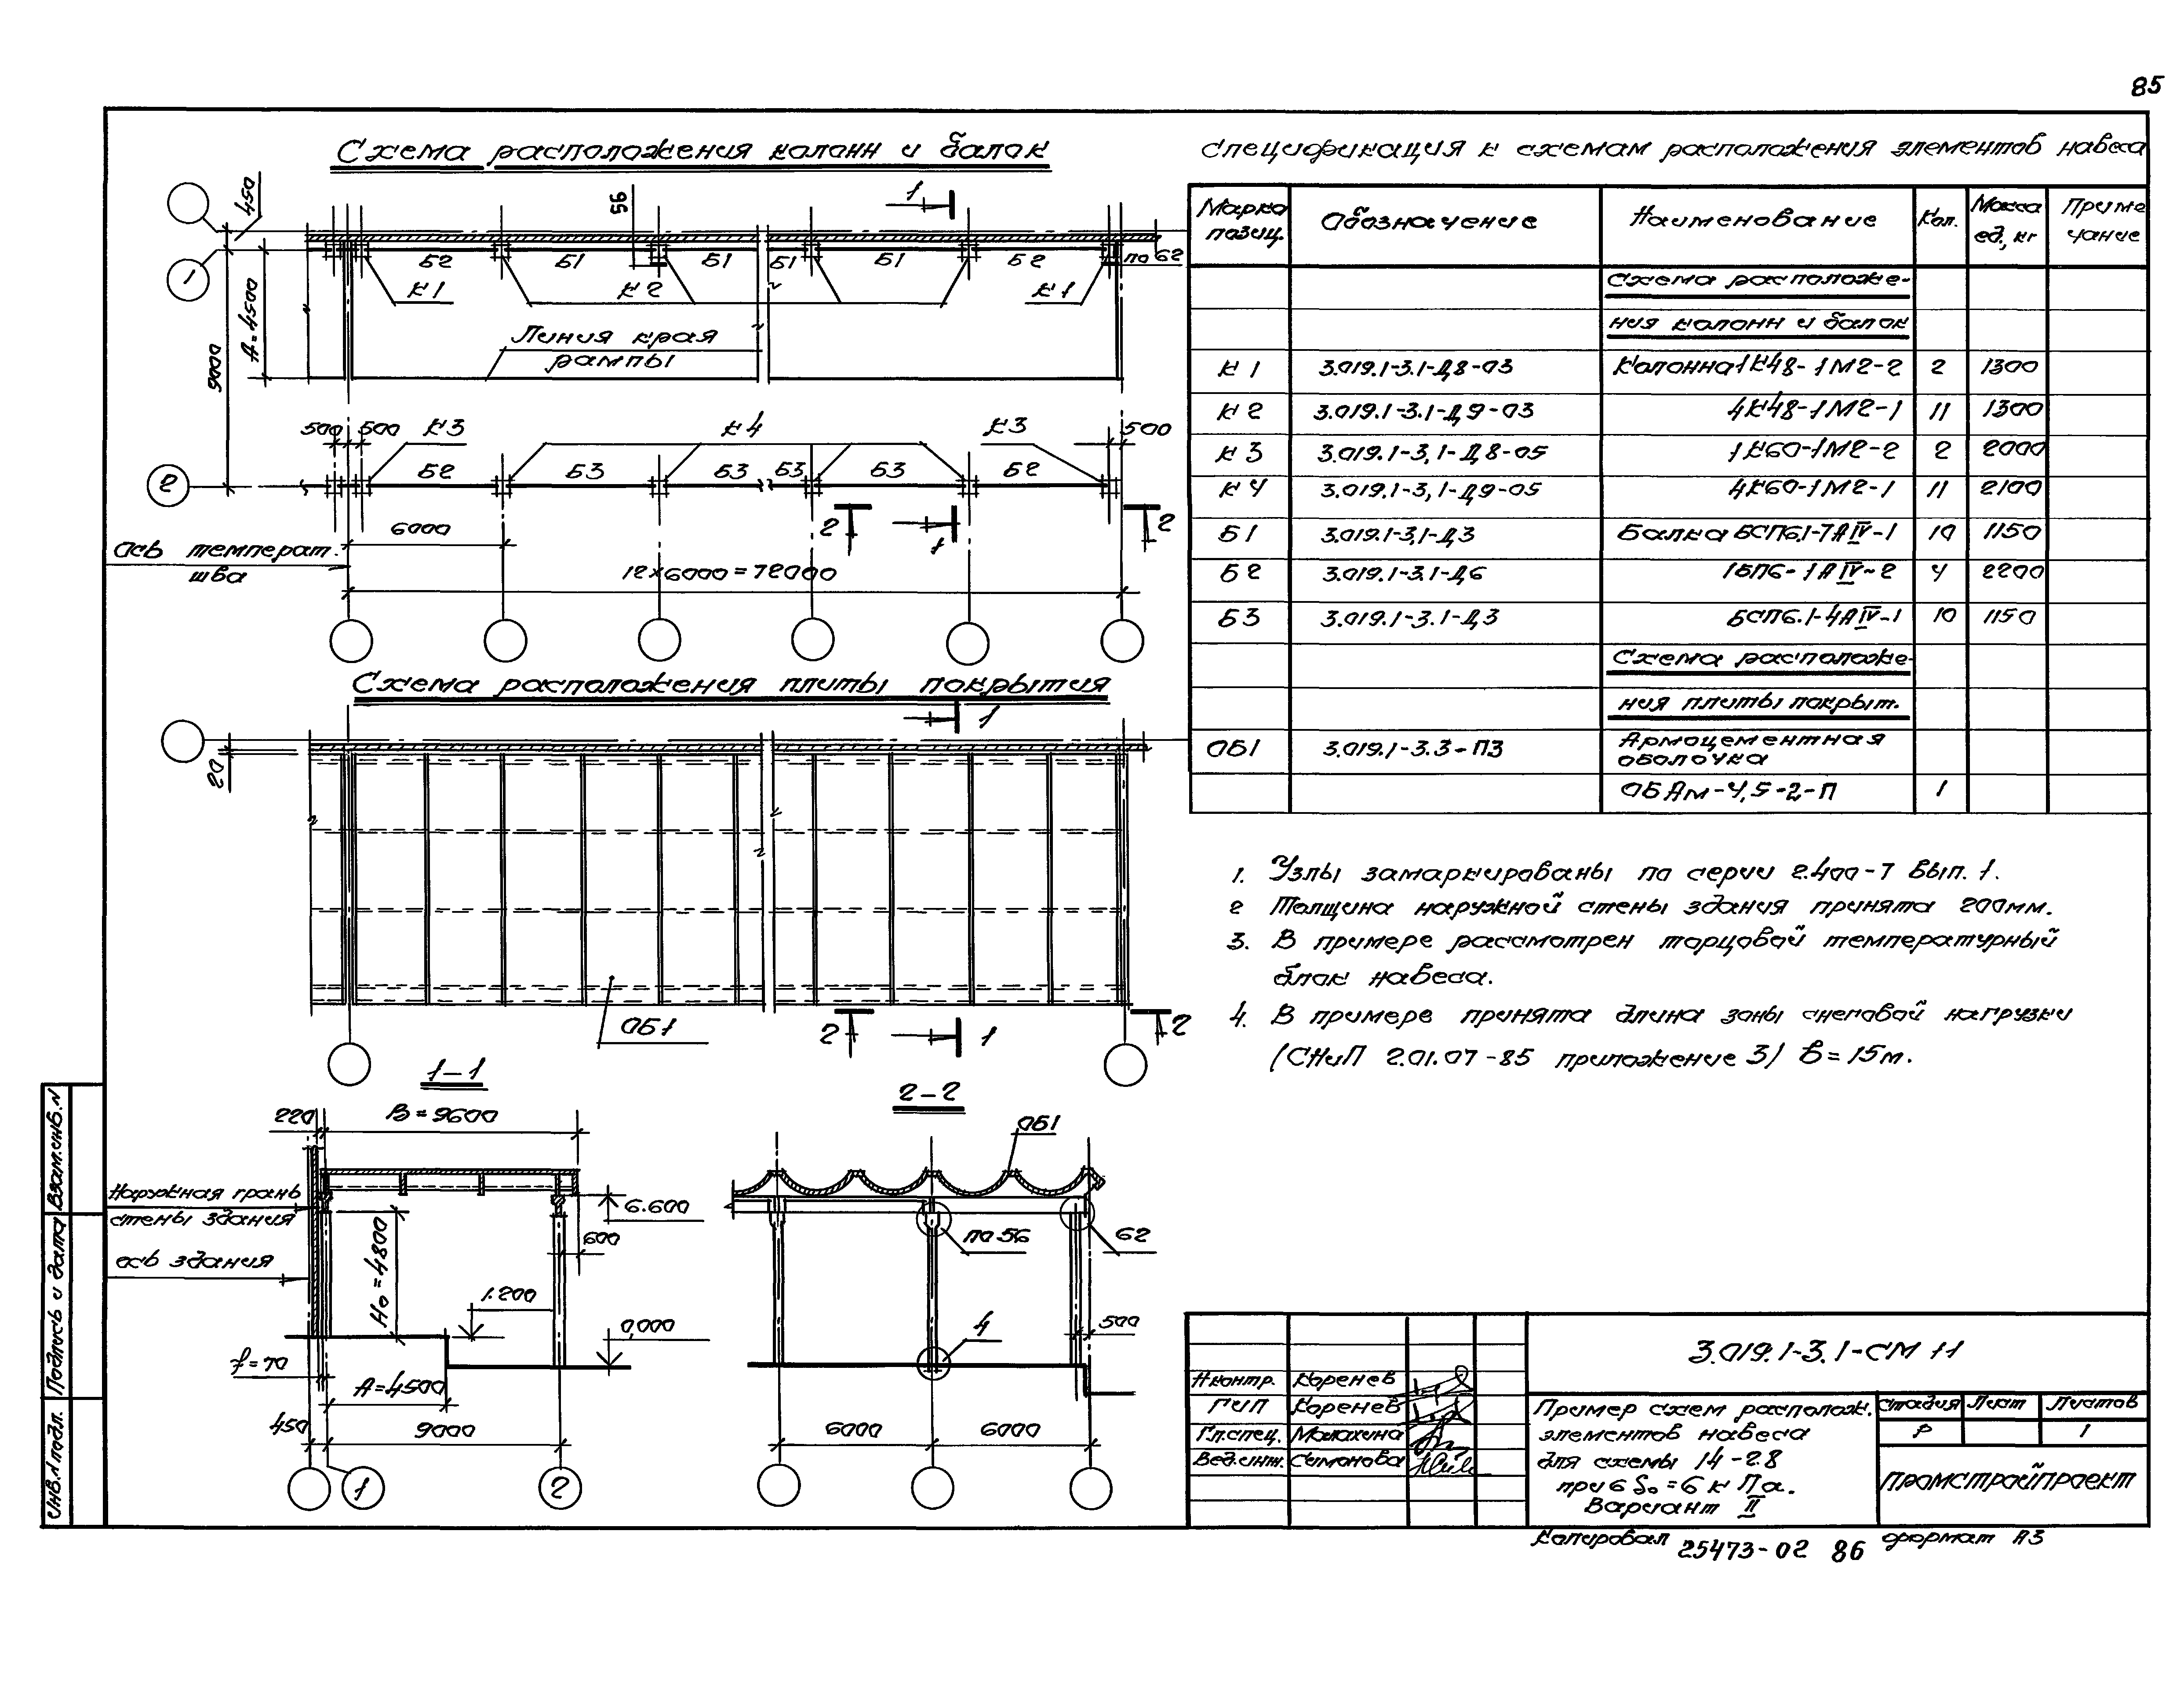 85
Схема расположения колонн и балок
450
95
1
1
Б2
Б1
Б1
Б1
Б1
Б2
по 62
К1
К2
К1
А=4500
9000
Линия края
рампы
500
500
К3
К4
К3
500
2
Б2
Б3
Б3
Б3
Б3
Б2
2
1
2
6000
Ось температ.
шва
12×6000=72000
Схема расположения плиты покрытия
1
20
ОБ1
2
1
2
1-1
220
В=9600
Наружная грань
стены здания
ось здания
Но=4800
6.600
600
1.200
0,000
f=70
А=4500
450
9000
1
2
2-2
ОБ1
по 56
62
4
500
6000
6000
Спецификация к схемам расположения элементов навеса
Марка позиц.
Обозначение
Наименование
Кол.
Масса ед., кг
Приме чание
Схема расположе-
ния колонн и балок
К1 3.019.1-3.1-Д8-03 Колонна 1К48-1М2-2 2 1300
К2 3.019.1-3.1-Д9-03 4К48-1М2-1 11 1300
К3 3.019.1-3,1-Д8-05 1К60-1М2-2 2 2000
К4 3.019.1-3,1-Д9-05 4К60-1М2-1 11 2100
Б1 3.019.1-3,1-Д3 Балка БСП6.1-7АIV-1 10 1150
Б2 3.019.1-3.1-Д6 1БП6-1АIV-2 4 2200
Б3 3.019.1-3.1-Д3 БСП6.1-4АIV-1 10 1150
Схема расположе-
ния плиты покрыт.
ОБ1 3.019.1-3.3-П3 Армоцементная
оболочка
ОБАм-4,5-2-П 1
1. Узлы замаркированы по серии 2.400-7 Вып. 1.
2 Толщина наружной стены здания принята 200мм.
3. В примере рассмотрен торцовой температурный
блок навеса.
4. В примере принята длина зоны снеговой нагрузки
(СНиП 2.01.07-85 приложение 3) в=15м.
3.019.1-3.1-СМ 11
Н.контр. Коренев
ГИП Коренев
Гл.спец. Малахина
Вед.инж. Симонова
Пример схем располож.
элементов навеса
для схемы 14-28
при б So=6 кПа.
Вариант II
Стадия Лист Листов
Р 1
Промстройпроект
Копировал 25473-02 86 формат А3
Инв.N подл. Подпись и дата Взам.инв.N